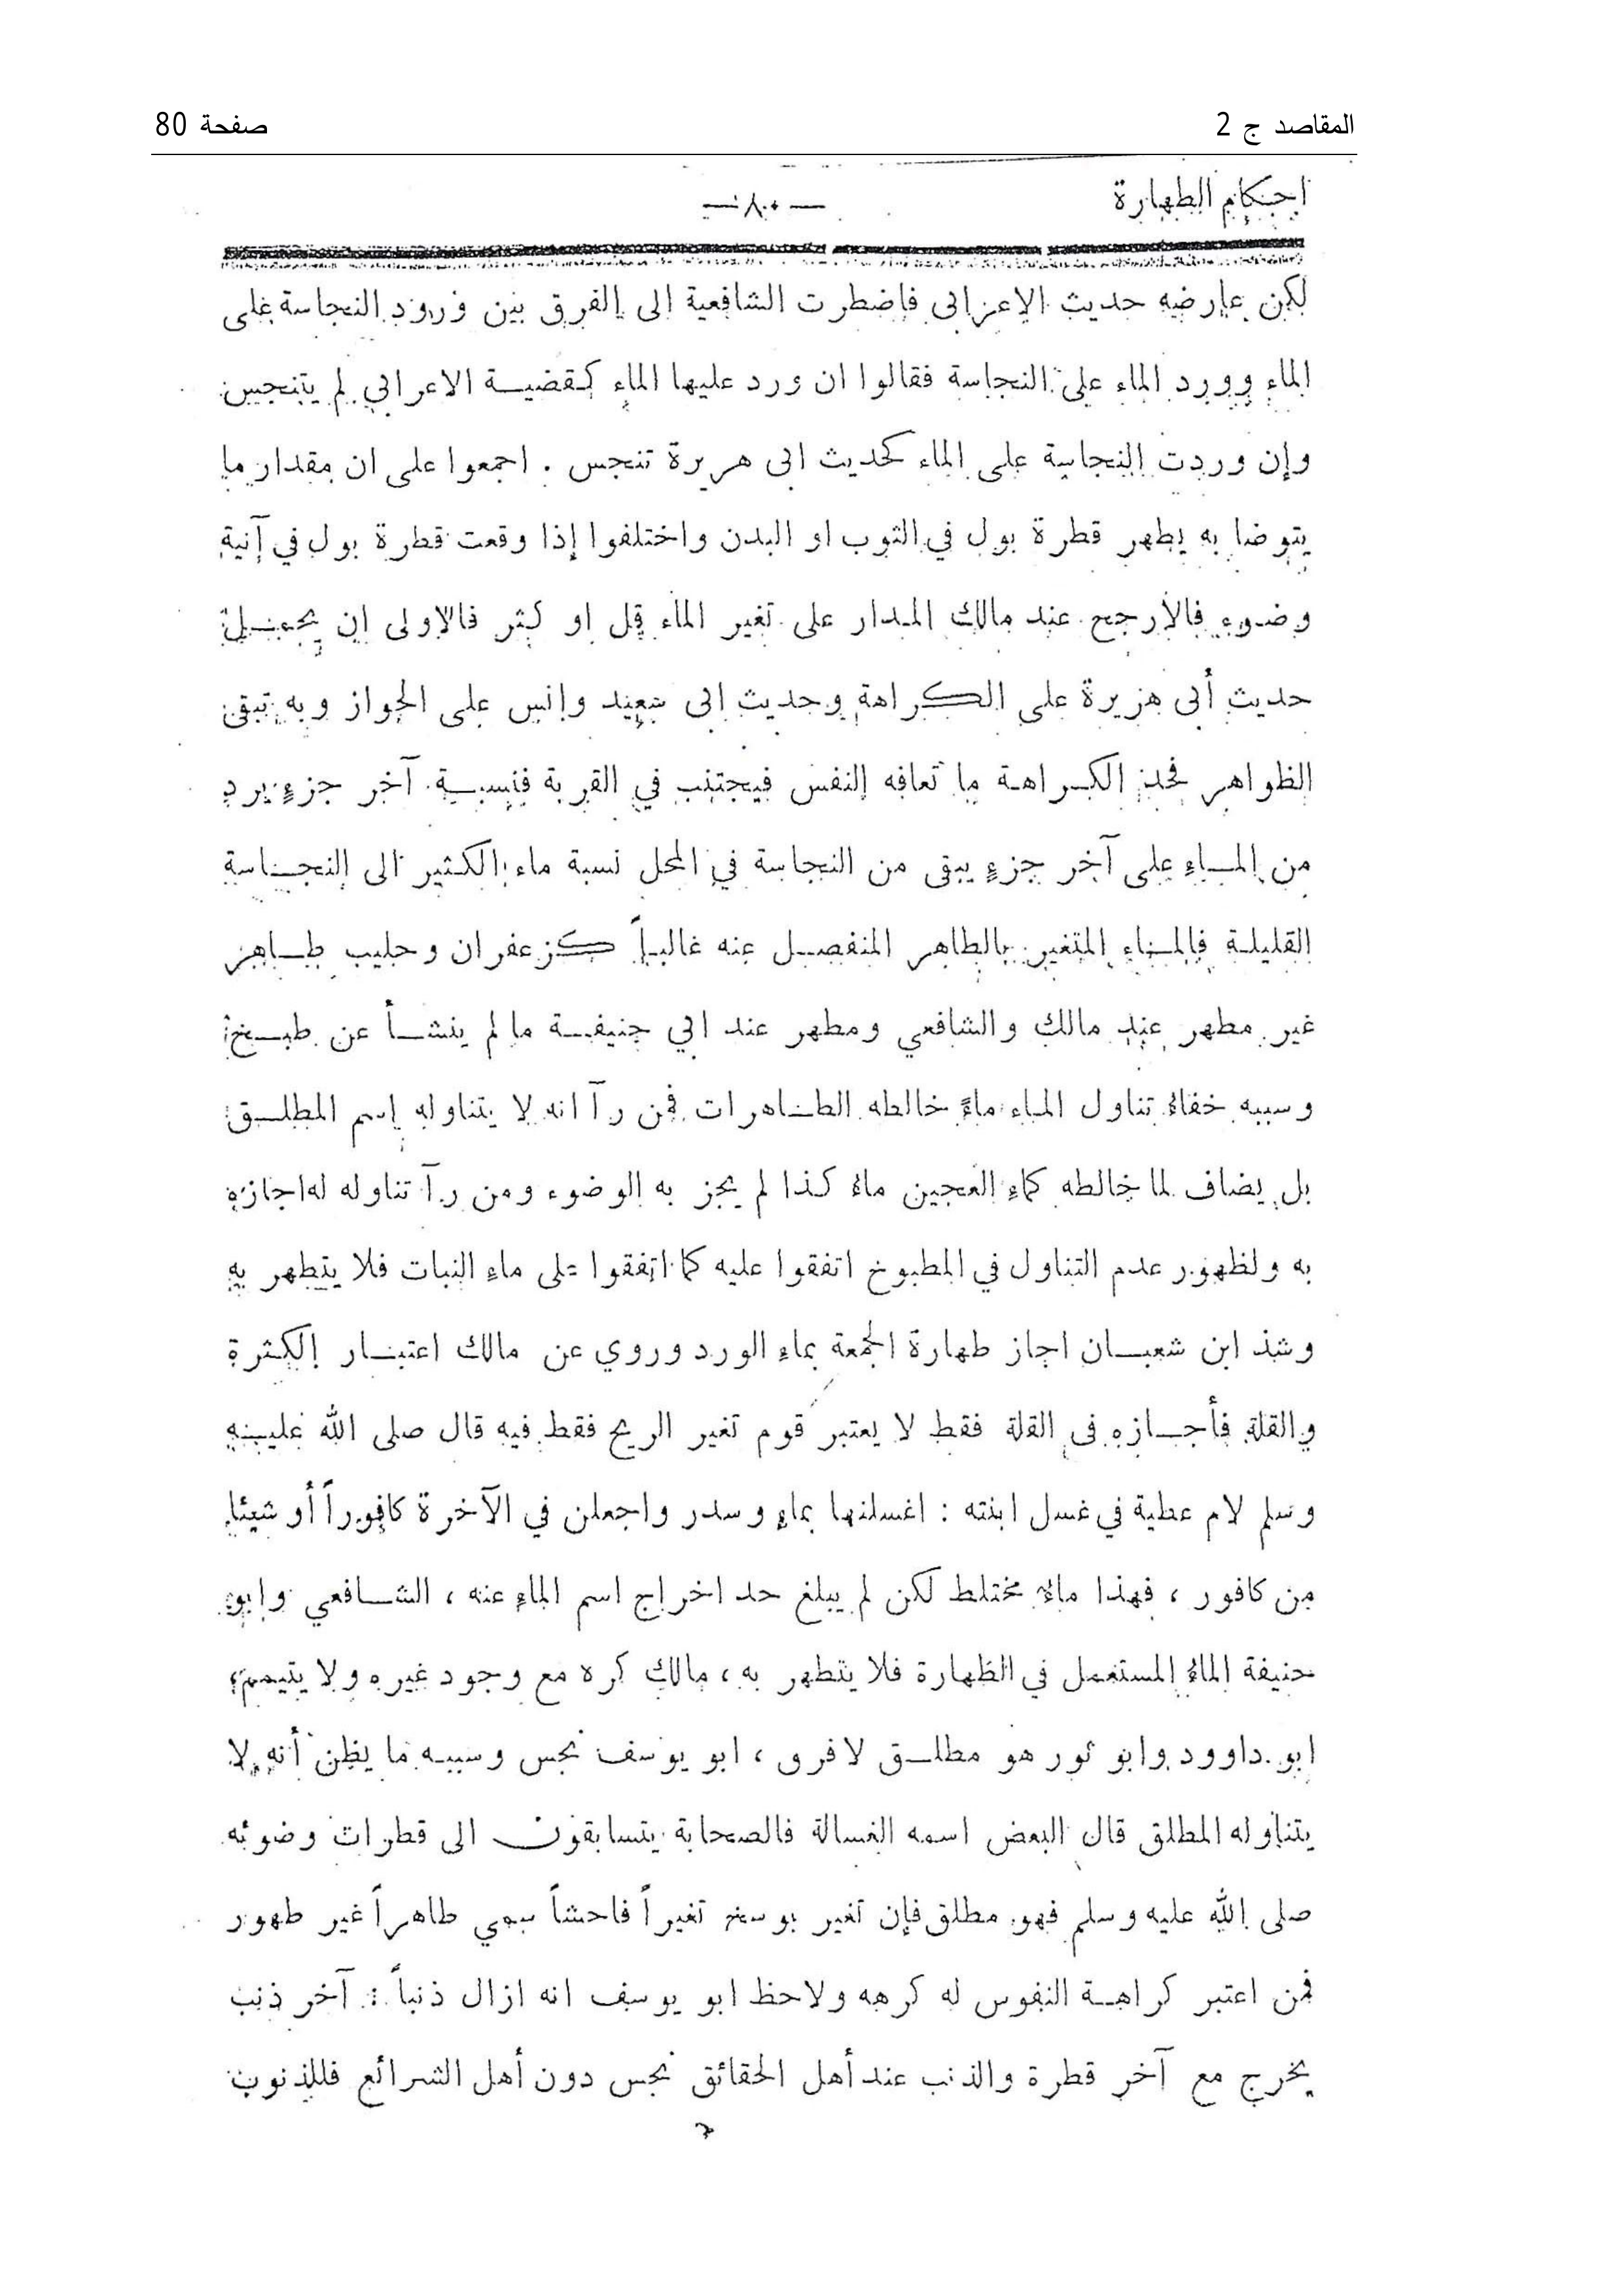 المقاصد ج 2
صفحة 80
احكام الطهارة
— ٨٠ —
لكن عارضه حديث الاعرابى فاضطرت الشافعية الى الفرق بين ورود النجاسة على
الماء وورد الماء على النجاسة فقالوا ان ورد عليها الماء كقضية الاعرابي لم يتنجس
وإن وردت النجاسة على الماء كحديث ابى هريرة تنجس . اجمعوا على ان مقدار ما
يتوضا به يطهر قطرة بول في الثوب او البدن واختلفوا إذا وقعت قطرة بول في آنية
وضوء فالأرجح عند مالك المدار على تغير الماء قل او كثر فالاولى ان يحمل
حديث أبى هريرة على الكراهة وحديث ابى سعيد وانس على الجواز وبه تبقى
الظواهر فحد الكراهة ما تعافه النفس فيجتنب في القربة فنسبة آخر جزء يرد
من الماء على آخر جزء يبقى من النجاسة في المحل نسبة ماء الكثير الى النجاسة
القليلة فالماء المتغير بالطاهر المنفصل عنه غالباً كزعفران وحليب طاهر
غير مطهر عند مالك والشافعي ومطهر عند ابي حنيفة ما لم ينشأ عن طبخ
وسببه خفاء تناول الماء ماءً خالطه الطاهرات فمن رآ انه لا يتناوله إسم المطلق
بل يضاف لما خالطه كماء العجين ماء كذا لم يجز به الوضوء ومن رآ تناوله له اجازه
به ولظهور عدم التناول في المطبوخ اتفقوا عليه كما اتفقوا على ماء النبات فلا يتطهر به
وشذ ابن شعبان اجاز طهارة الجمعة بماء الورد وروي عن مالك اعتبار الكثرة
والقلة فأجازه فى القلة فقط لا يعتبر قوم تغير الريح فقط فيه قال صلى الله عليه
وسلم لام عطية في غسل ابنته : اغسلنها بماء وسدر واجعلن في الآخرة كافوراً أو شيئا
من كافور ، فهذا ماء مختلط لكن لم يبلغ حد اخراج اسم الماء عنه ، الشافعي وابو
حنيفة الماء المستعمل في الطهارة فلا يتطهر به ، مالك كره مع وجود غيره ولا يتيمم ؛
ابو داوود وابو ثور هو مطلق لا فرق ، ابو يوسف نجس وسببه ما يظن أنه لا
يتناوله المطلق قال البعض اسمه الغسالة فالصحابة يتسابقون الى قطرات وضوئه
صلى الله عليه وسلم فهو مطلق فإن تغير بوسخ تغيراً فاحشاً سمي طاهراً غير طهور
فمن اعتبر كراهة النفوس له كرهه ولاحظ ابو يوسف انه ازال ذنباً : آخر ذنب
يخرج مع آخر قطرة والذنب عند أهل الحقائق نجس دون أهل الشرائع فللذنوب